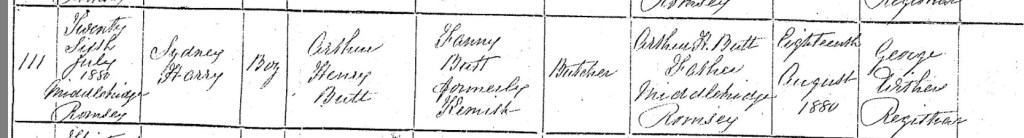 Romsey
Registrar
111
Twenty
Fifth
July
1880
Middlebridge
Romsey
Sydney
Harry
Boy
Arthur
Henry
Butt
Fanny
Butt
formerly
Kemish
Butcher
Arthur H. Butt
Father
Middlebridge
Romsey
Eighteenth
August
1880
George
Withers
Registrar